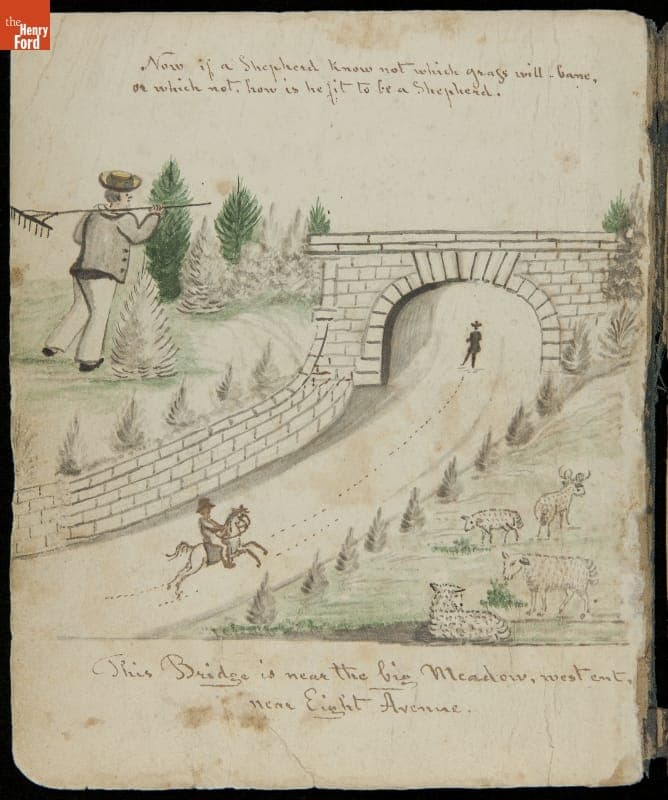 the
Henry
Ford
Now if a Shepherd know not which grass will bane,
or which not, how is he fit to be a Shepherd.
This Bridge is near the big Meadow, west ent,
near Eight Avenue.